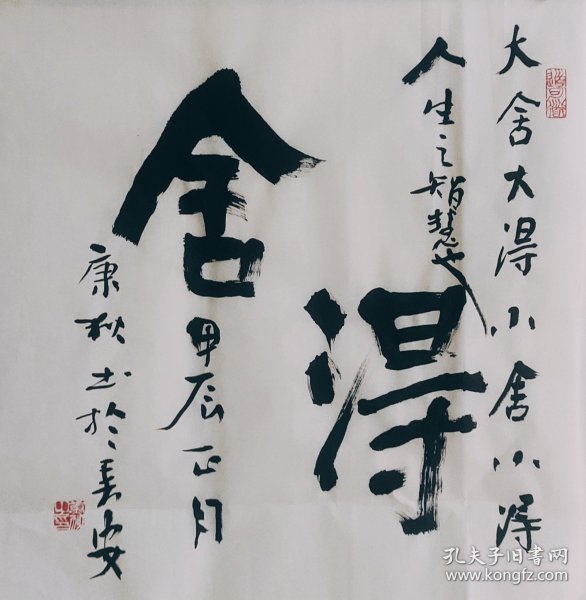 大舍大得小舍小得
人生之智慧也
舍得
甲辰正月
康秋书於长安
孔夫子旧书网
www.kongfz.com